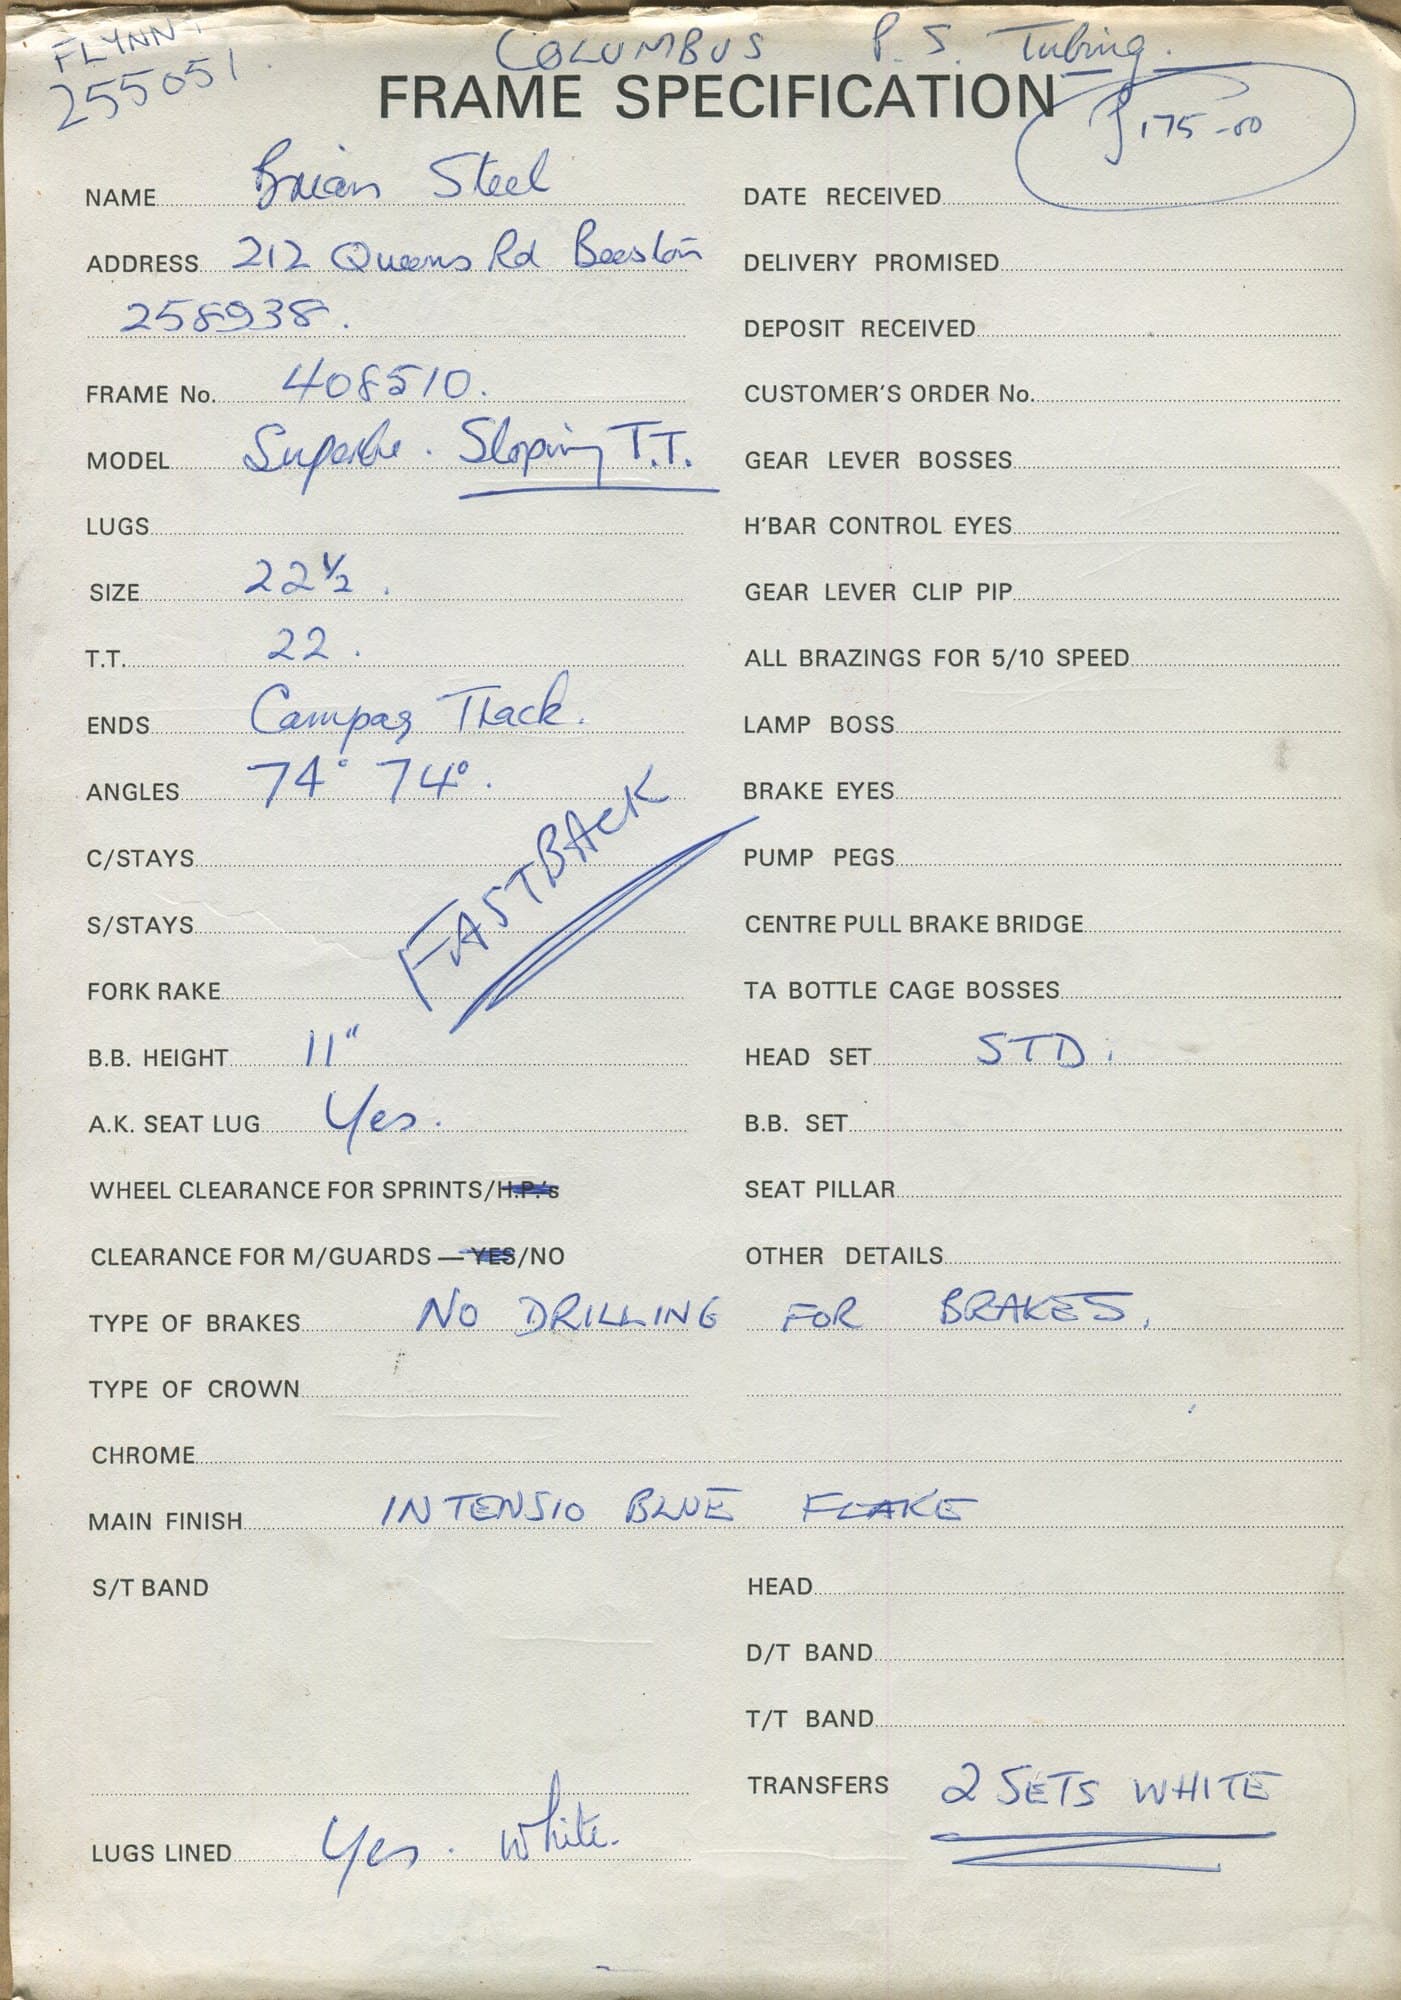 FLYNN
255051.
COLUMBUS P.S. Tubing.
FRAME SPECIFICATION
£175-00
NAME Brian Steel
ADDRESS 212 Queens Rd Beeston
258938.
FRAME No. 408510.
MODEL Superbe. Sloping T.T.
LUGS
SIZE 22½.
T.T. 22.
ENDS Campag Track.
ANGLES 74° 74°.
C/STAYS
S/STAYS
FASTBACK
FORK RAKE
B.B. HEIGHT 11"
A.K. SEAT LUG Yes.
WHEEL CLEARANCE FOR SPRINTS/H.P.'s
CLEARANCE FOR M/GUARDS — YES/NO
DATE RECEIVED
DELIVERY PROMISED
DEPOSIT RECEIVED
CUSTOMER'S ORDER No.
GEAR LEVER BOSSES
H'BAR CONTROL EYES
GEAR LEVER CLIP PIP
ALL BRAZINGS FOR 5/10 SPEED
LAMP BOSS
BRAKE EYES
PUMP PEGS
CENTRE PULL BRAKE BRIDGE
TA BOTTLE CAGE BOSSES
HEAD SET STD.
B.B. SET
SEAT PILLAR
OTHER DETAILS
TYPE OF BRAKES NO DRILLING FOR BRAKES.
TYPE OF CROWN
CHROME
MAIN FINISH INTENSIO BLUE FLAKE
S/T BAND
HEAD
D/T BAND
T/T BAND
TRANSFERS 2 SETS WHITE
LUGS LINED Yes. White.